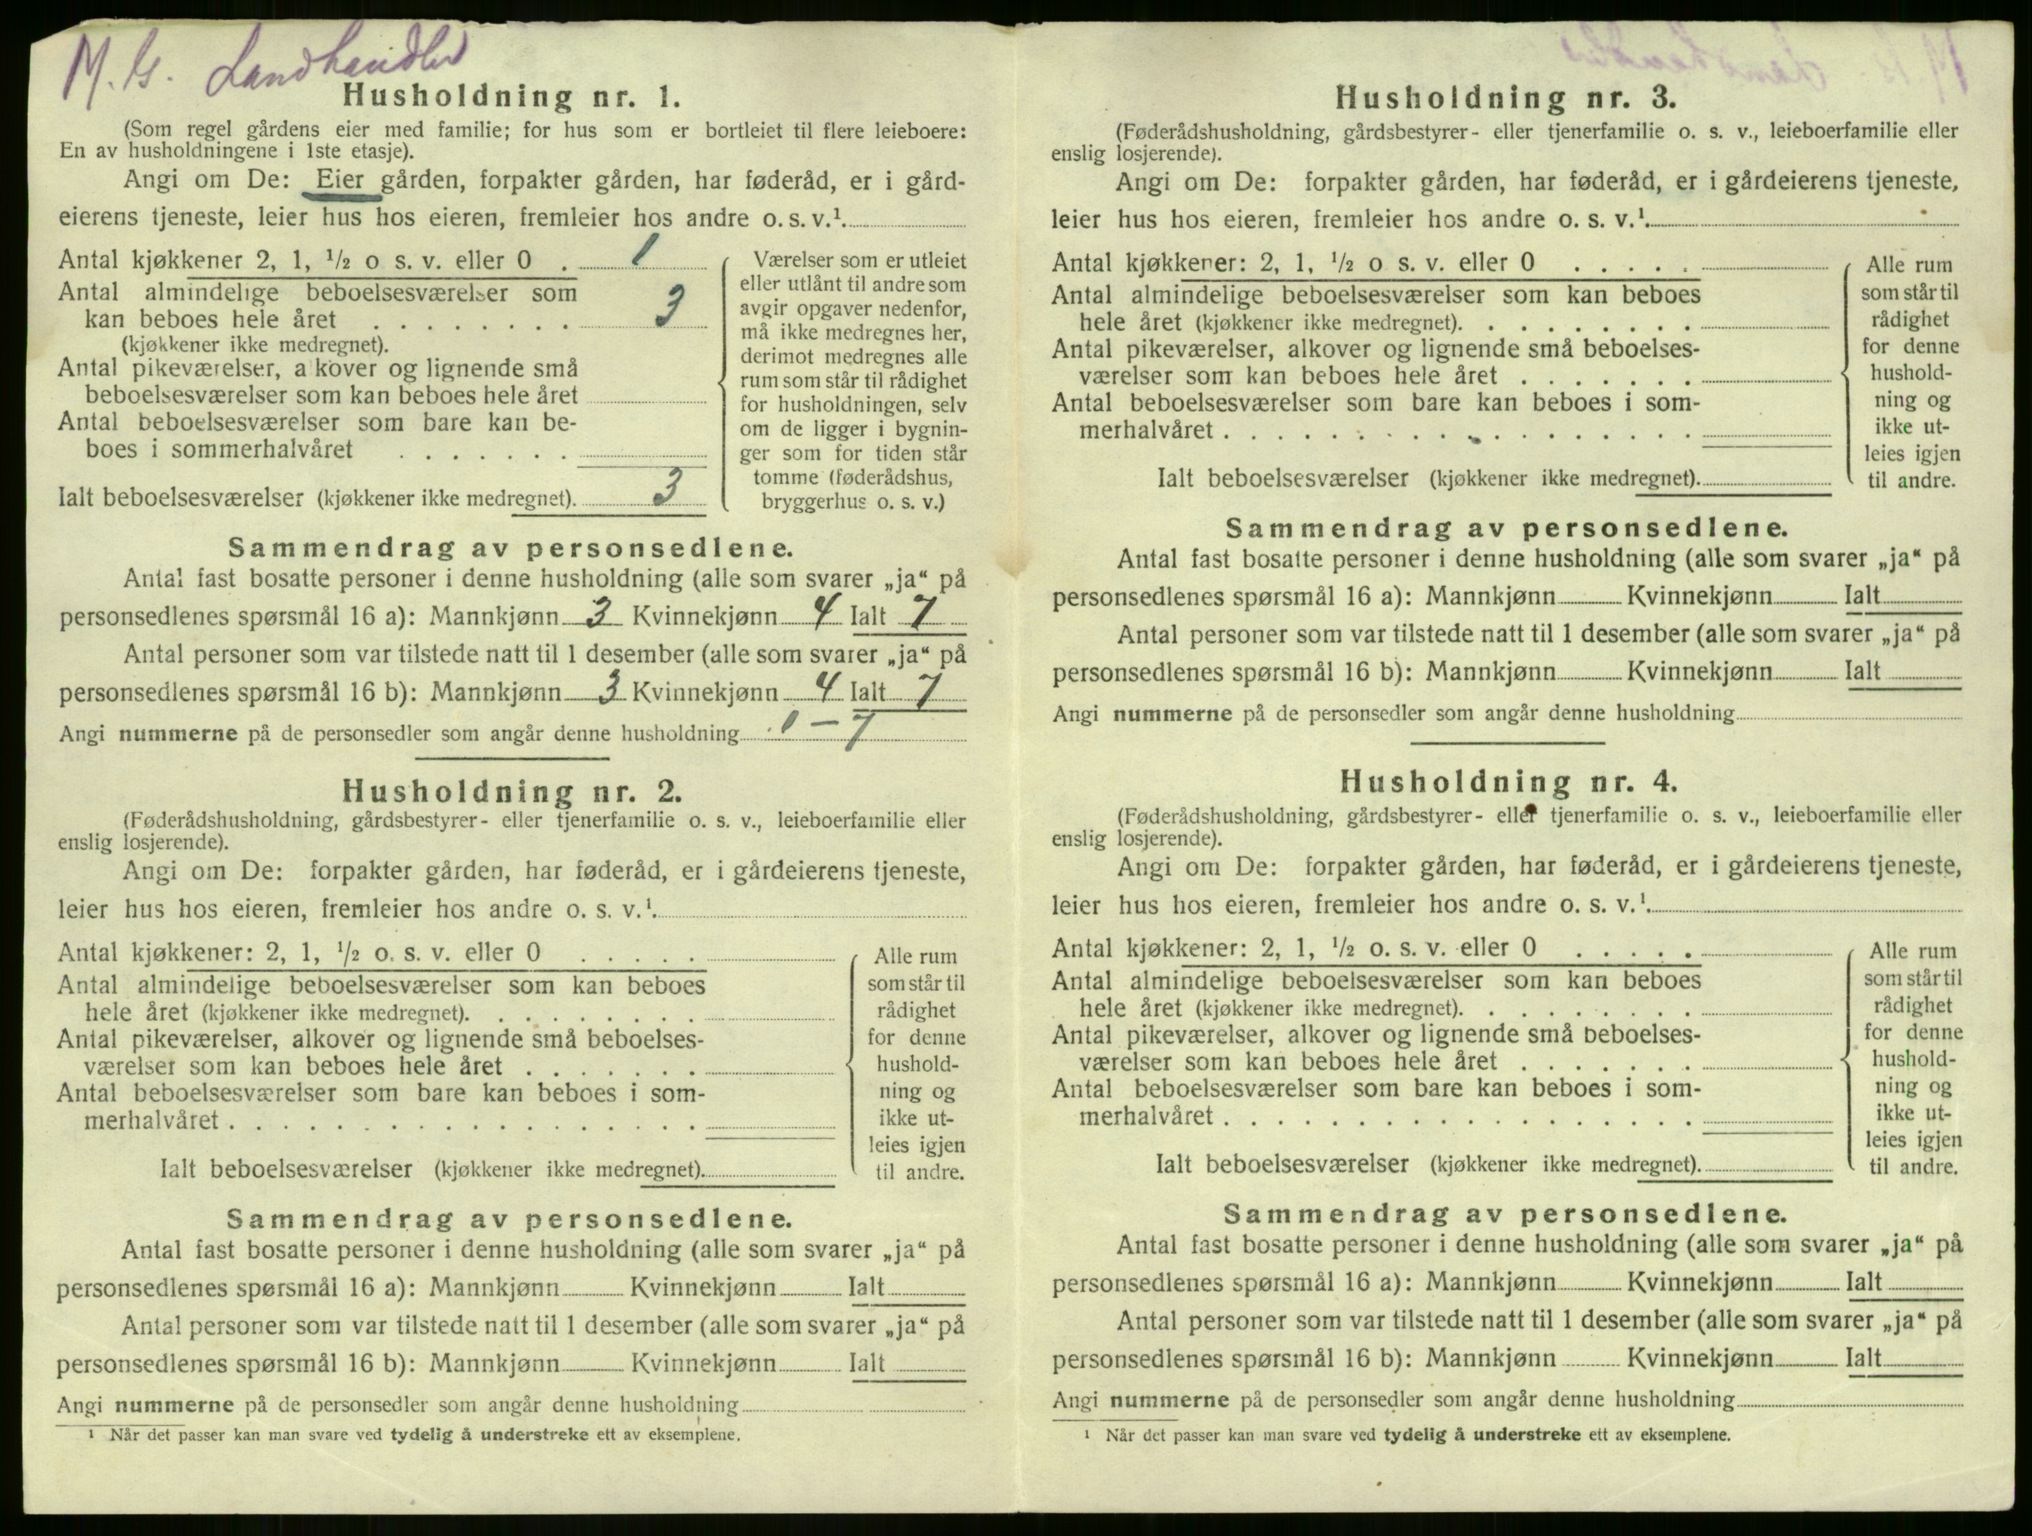 M. G. Landhandler
Husholdning nr. 1.
(Som regel gårdens eier med familie; for hus som er bortleiet til flere leieboere:
En av husholdningene i 1ste etasje).
Angi om De: Eier gården, forpakter gården, har føderåd, er i gård-
eierens tjeneste, leier hus hos eieren, fremleier hos andre o. s. v.¹
Antal kjøkkener 2, 1, ½ o s. v. eller 0 . 1
Antal almindelige beboelsesværelser som
kan beboes hele året . . . . . . . . 3
(kjøkkener ikke medregnet).
Antal pikeværelser, a kover og lignende små
beboelsesværelser som kan beboes hele året
Antal beboelsesværelser som bare kan be-
boes i sommerhalvåret . . . . . . .
Ialt beboelsesværelser (kjøkkener ikke medregnet). 3
Værelser som er utleiet
eller utlånt til andre som
avgir opgaver nedenfor,
må ikke medregnes her,
derimot medregnes alle
rum som står til rådighet
for husholdningen, selv
om de ligger i bygnin-
ger som for tiden står
tomme (føderådshus,
bryggerhus o. s. v.)
Sammendrag av personsedlene.
Antal fast bosatte personer i denne husholdning (alle som svarer „ja“ på
personsedlenes spørsmål 16 a): Mannkjønn 3 Kvinnekjønn 4 Ialt 7
Antal personer som var tilstede natt til 1 desember (alle som svarer „ja“ på
personsedlenes spørsmål 16 b): Mannkjønn 3 Kvinnekjønn 4 Ialt 7
Angi nummerne på de personsedler som angår denne husholdning 1 – 7
Husholdning nr. 2.
(Føderådshusholdning, gårdsbestyrer- eller tjenerfamilie o. s. v., leieboerfamilie eller
enslig losjerende).
Angi om De: forpakter gården, har føderåd, er i gårdeierens tjeneste,
leier hus hos eieren, fremleier hos andre o. s. v.¹
Antal kjøkkener: 2, 1, ½ o. s. v. eller 0 . . . . .
Antal almindelige beboelsesværelser som kan beboes
hele året (kjøkkener ikke medregnet). . . . . . . . .
Antal pikeværelser, alkover og lignende små beboelses-
værelser som kan beboes hele året . . . . . . .
Antal beboelsesværelser som bare kan beboes i som-
merhalvåret . . . . . . . . . . . . . . . . . .
Ialt beboelsesværelser (kjøkkener ikke medregnet).
Alle rum
som står til
rådighet
for denne
hushold-
ning og
ikke ut-
leies igjen
til andre.
Sammendrag av personsedlene.
Antal fast bosatte personer i denne husholdning (alle som svarer „ja“ på
personsedlenes spørsmål 16 a): Mannkjønn Kvinnekjønn Ialt
Antal personer som var tilstede natt til 1 desember (alle som svarer „ja“ på
personsedlenes spørsmål 16 b): Mannkjønn Kvinnekjønn Ialt
Angi nummerne på de personsedler som angår denne husholdning
¹ Når det passer kan man svare ved tydelig å understreke ett av eksemplene.
Husholdning nr. 3.
(Føderådshusholdning, gårdsbestyrer- eller tjenerfamilie o. s. v., leieboerfamilie eller
enslig losjerende).
Angi om De: forpakter gården, har føderåd, er i gårdeierens tjeneste,
leier hus hos eieren, fremleier hos andre o. s. v.¹
Antal kjøkkener: 2, 1, ½ o s. v. eller 0 . . . . .
Antal almindelige beboelsesværelser som kan beboes
hele året (kjøkkener ikke medregnet). . . . . . . . .
Antal pikeværelser, alkover og lignende små beboelses-
værelser som kan beboes hele året . . . . . . .
Antal beboelsesværelser som bare kan beboes i som-
merhalvåret . . . . . . . . . . . . . . . . . .
Ialt beboelsesværelser (kjøkkener ikke medregnet).
Alle rum
som står til
rådighet
for denne
hushold-
ning og
ikke ut-
leies igjen
til andre.
Sammendrag av personsedlene.
Antal fast bosatte personer i denne husholdning (alle som svarer „ja“ på
personsedlenes spørsmål 16 a): Mannkjønn Kvinnekjønn Ialt
Antal personer som var tilstede natt til 1 desember (alle som svarer „ja“ på
personsedlenes spørsmål 16 b): Mannkjønn Kvinnekjønn Ialt
Angi nummerne på de personsedler som angår denne husholdning
Husholdning nr. 4.
(Føderådshusholdning, gårdsbestyrer- eller tjenerfamilie o. s. v., leieboerfamilie eller
enslig losjerende).
Angi om De: forpakter gården, har føderåd, er i gårdeierens tjeneste,
leier hus hos eieren, fremleier hos andre o. s. v.¹
Antal kjøkkener: 2, 1, ½ o. s. v. eller 0 . . . . .
Antal almindelige beboelsesværelser som kan beboes
hele året (kjøkkener ikke medregnet). . . . . . . . .
Antal pikeværelser, alkover og lignende små beboelses-
værelser som kan beboes hele året . . . . . . .
Antal beboelsesværelser som bare kan beboes i som-
merhalvåret . . . . . . . . . . . . . . . . . .
Ialt beboelsesværelser (kjøkkener ikke medregnet).
Alle rum
som står til
rådighet
for denne
hushold-
ning og
ikke ut-
leies igjen
til andre.
Sammendrag av personsedlene.
Antal fast bosatte personer i denne husholdning (alle som svarer „ja“ på
personsedlenes spørsmål 16 a): Mannkjønn Kvinnekjønn Ialt
Antal personer som var tilstede natt til 1 desember (alle som svarer „ja“ på
personsedlenes spørsmål 16 b): Mannkjønn Kvinnekjønn Ialt
Angi nummerne på de personsedler som angår denne husholdning
¹ Når det passer kan man svare ved tydelig å understreke ett av eksemplene.